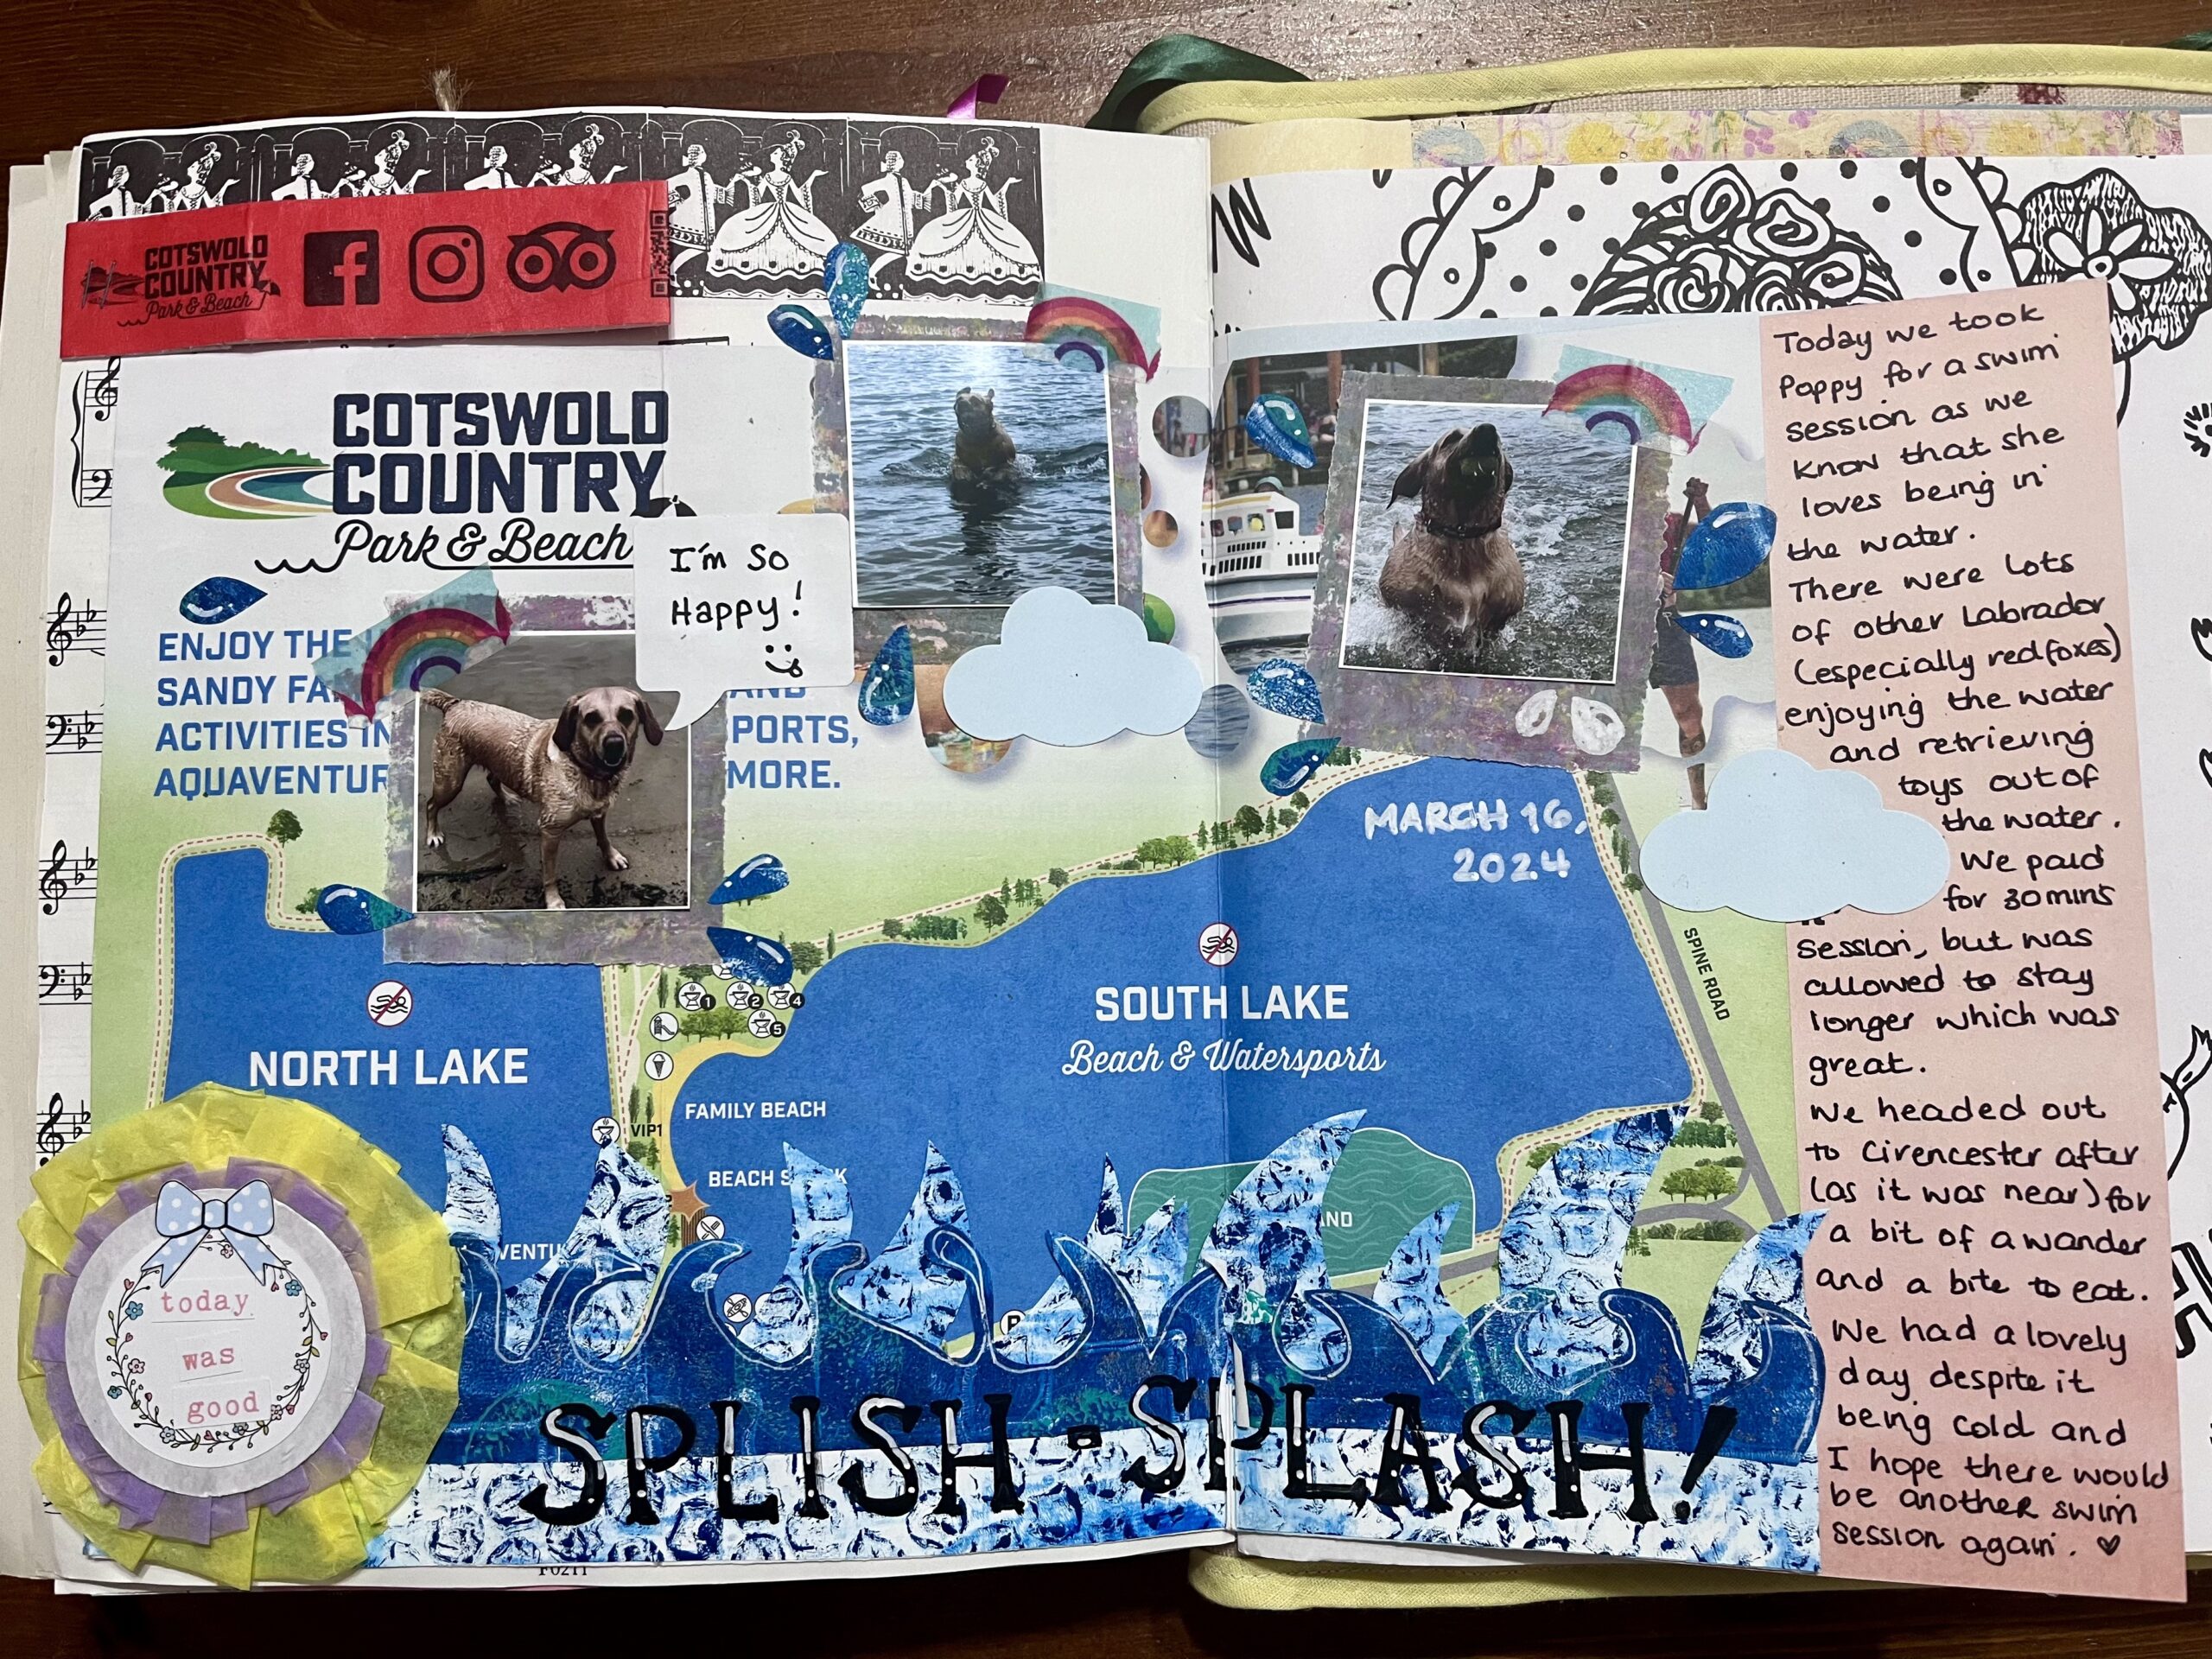 COTSWOLD
COUNTRY
Park & Beach
COTSWOLD
COUNTRY
Park & Beach
I'm So
Happy!
ENJOY THE
SANDY
ACTIVITIES IN
AND
PORTS,
MORE.
MARCH 16,
2024
SPINE ROAD
NORTH LAKE
SOUTH LAKE
Beach & Watersports
1
2
4
5
VIP1
FAMILY BEACH
BEACH
today
was
good
SPLISH - SPLASH!
Today we took
Poppy for a swim
session as we
know that she
loves being in
the water.
There were lots
of other Labrador
(especially redfoxes)
enjoying the water
and retrieving
toys out of
the water.
We paid
for 30mins
session, but was
allowed to stay
longer which was
great.
We headed out
to Cirencester after
(as it was near) for
a bit of a wander
and a bite to eat.
We had a lovely
day despite it
being cold and
I hope there would
be another swim
session again.